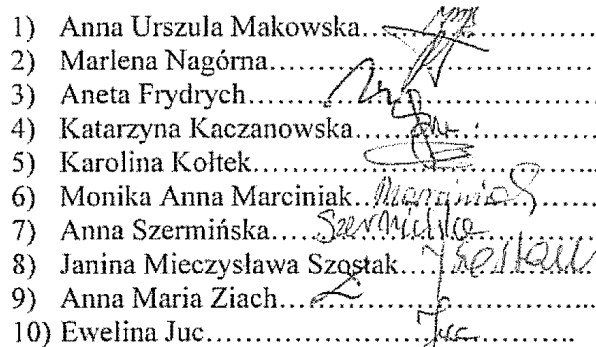 1) Anna Urszula Makowska……………………
2) Marlena Nagórna……………………………
3) Aneta Frydrych………………………………
4) Katarzyna Kaczanowska……………………
5) Karolina Kołtek………………………………
6) Monika Anna Marciniak…Marciniak………
7) Anna Szermińska……Szermińska…………
8) Janina Mieczysława Szostak…Szostak
9) Anna Maria Ziach……………………………
10) Ewelina Juc……………Juc…………